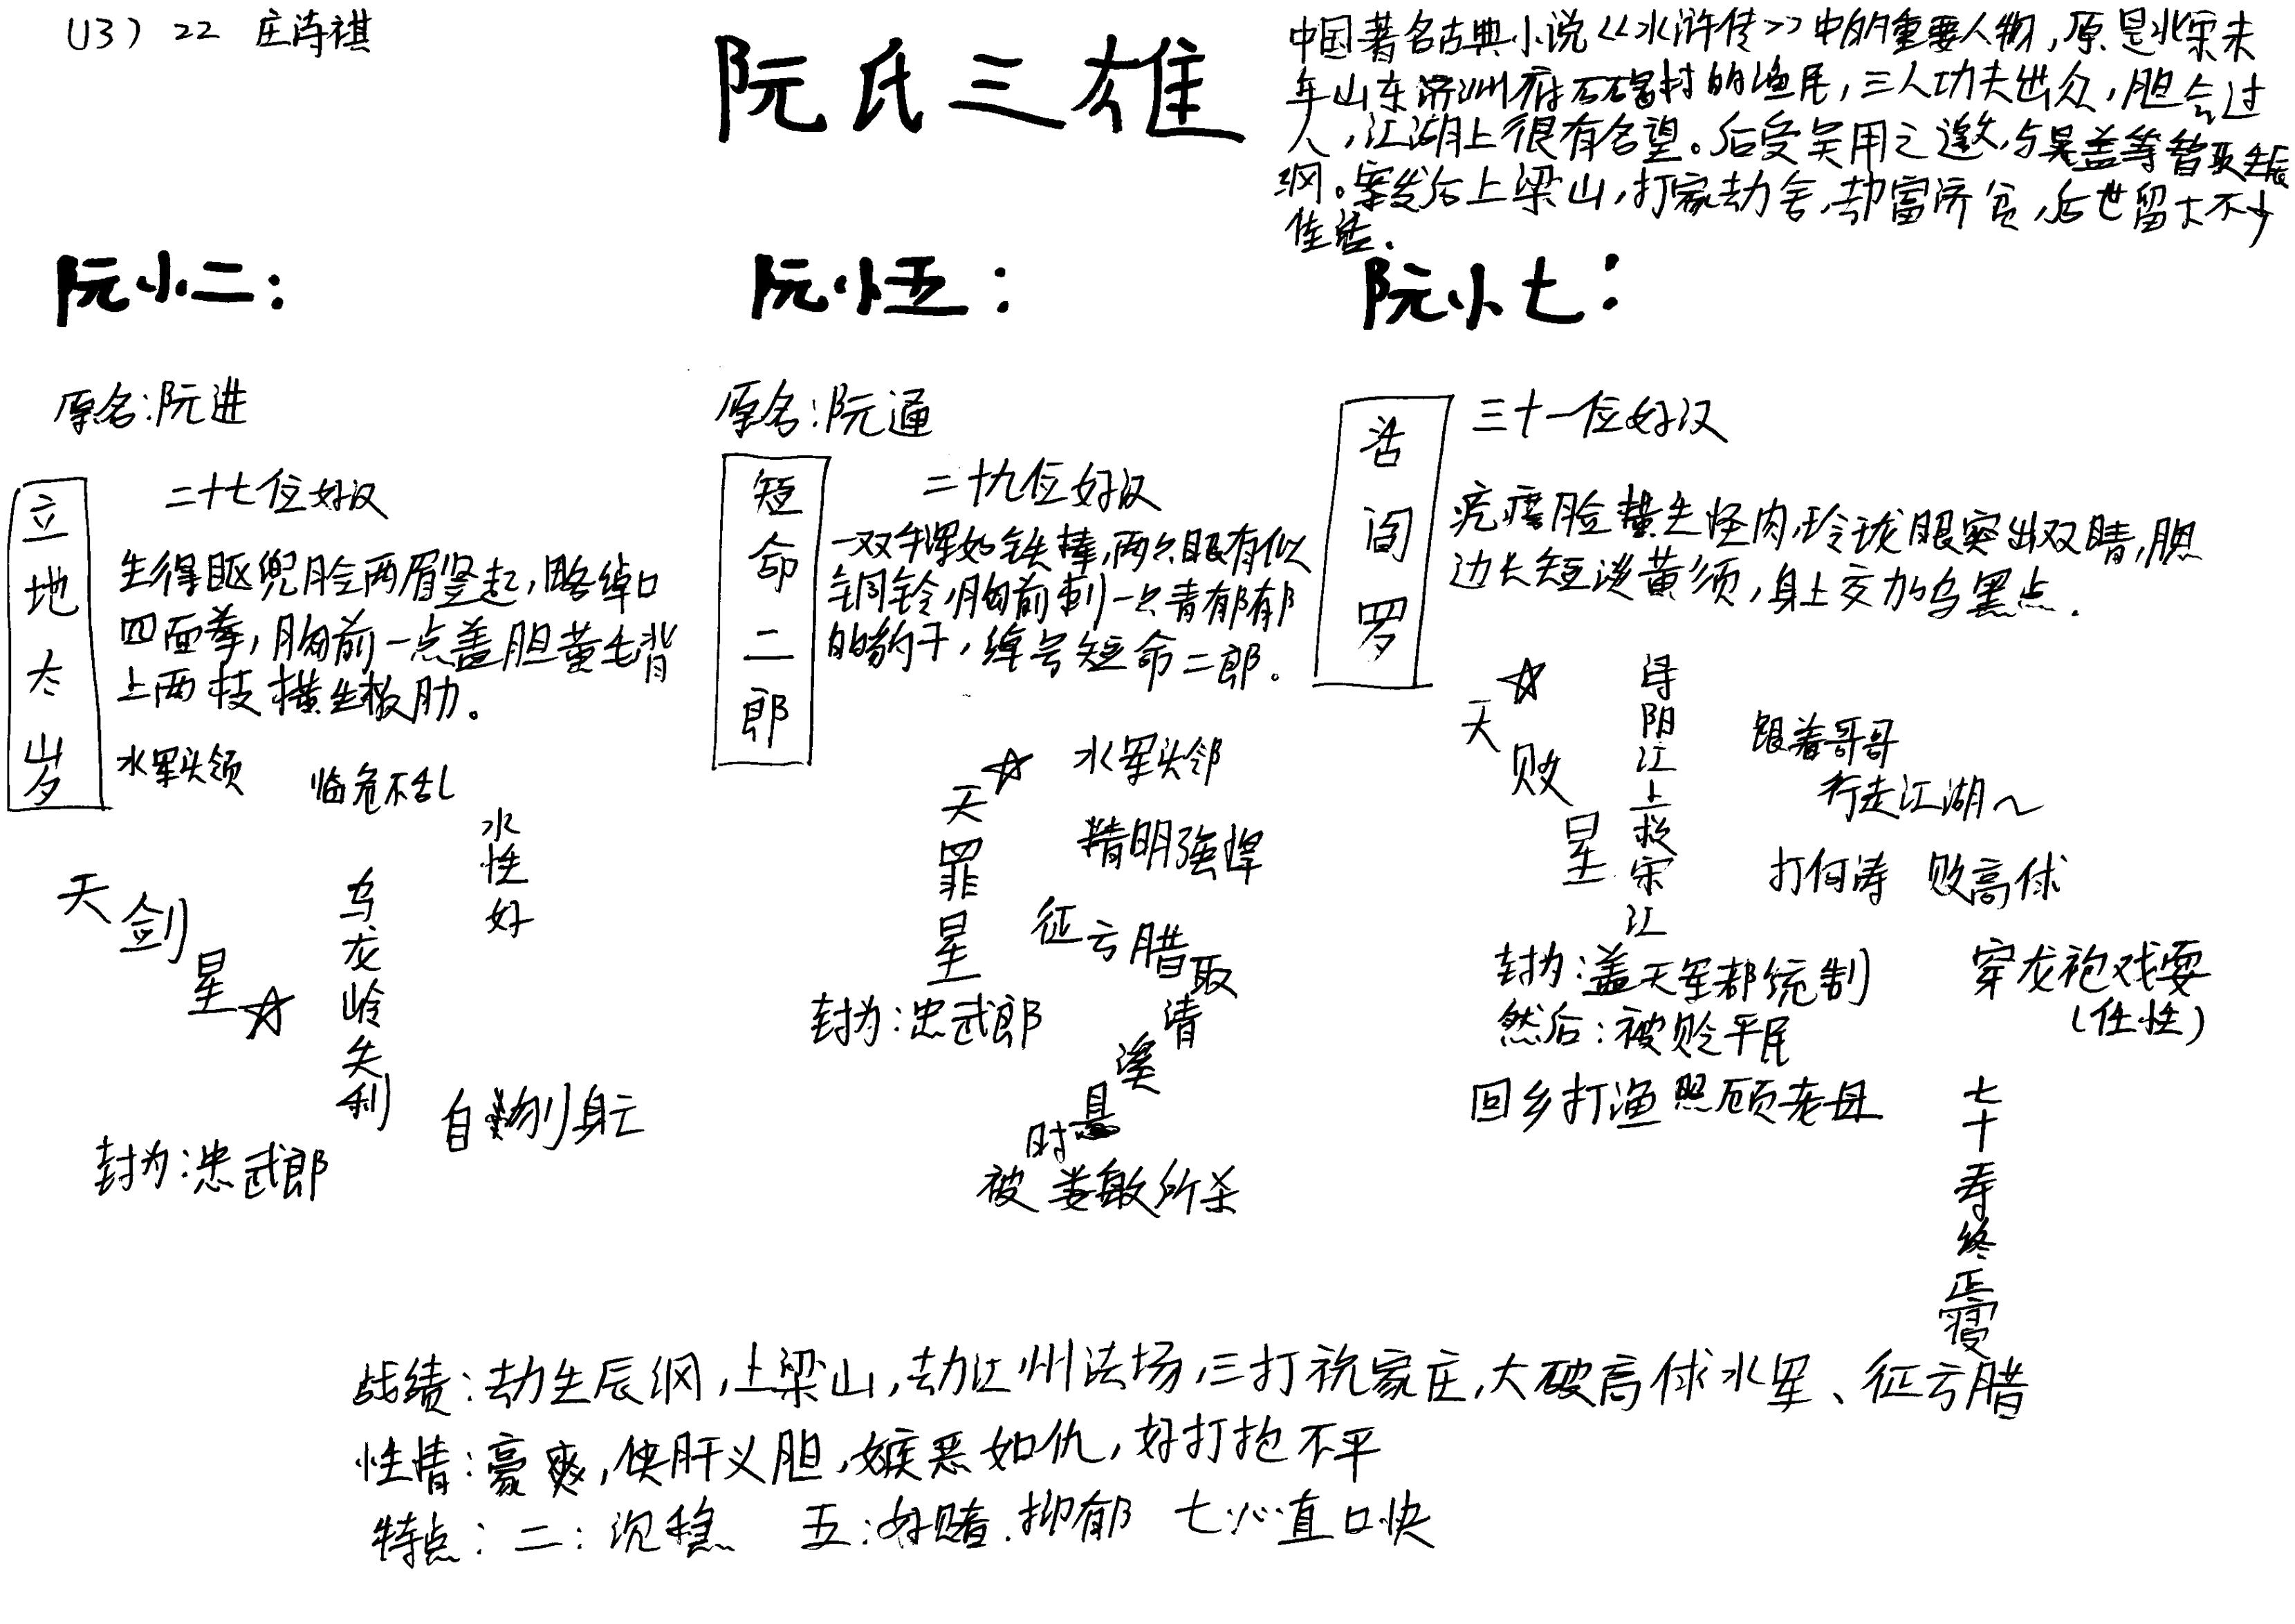 (13) 22 庄诗祺
阮氏三雄
中国著名古典小说《水浒传》中的重要人物,原是北宋末
年山东济州府石碣村的渔民,三人功夫出众,胆会过
人,江湖上很有名望。后受吴用之邀,与晁盖等智取生辰
纲。案发后上梁山,打家劫舍,劫富济贫,后世留下不少
佳话.
阮小二:
原名:阮进
立地太岁
二十七位好汉
生得眍兜脸两眉竖起,略绰口
四面拳,胸前一点盖胆黄毛背
上两枝横生板肋。
水军头领
临危不乱
水性好
天剑星☆
乌龙岭失利
自刎身亡
封为:忠武郎
阮小五:
原名:阮通
短命二郎
二十九位好汉
一双手浑如铁棒,两只眼有似
铜铃,胸前刺一点青郁郁
的豹子,绰号短命二郎。
☆天罪星
水军头邻
精明强悍
征方腊取清溪县时
被娄敏所杀
封为:忠武郎
阮小七:
活阎罗
三十一位好汉
疙瘩脸横生怪肉,玲珑眼突出双睛,腮
边长短淡黄须,身上交加乌黑点.
☆天败星
浔阳江上救宋江
跟着哥哥
行走江湖~
打何涛 败高俅
封为:盖天军都统制
然后:被贬平民
穿龙袍戏耍
(任性)
回乡打渔照顾老母
七十寿终正寝
战绩:劫生辰纲,上梁山,劫江州法场,三打祝家庄,大破高俅水军、征方腊
性情:豪爽,侠肝义胆,嫉恶如仇,好打抱不平
特点:二:沉稳 五:好赌.抑郁 七:心直口快